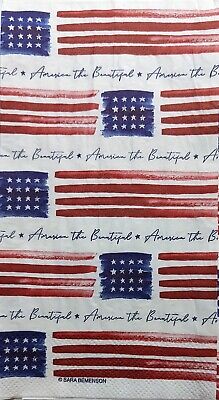 America the Beautiful ★ America the Beautiful ★
the Beautiful ★ America the Beautiful ★ America
America the Beautiful ★ America the Beautiful ★
the Beautiful ★ America the Beautiful ★ America
© SARA BEMENSON